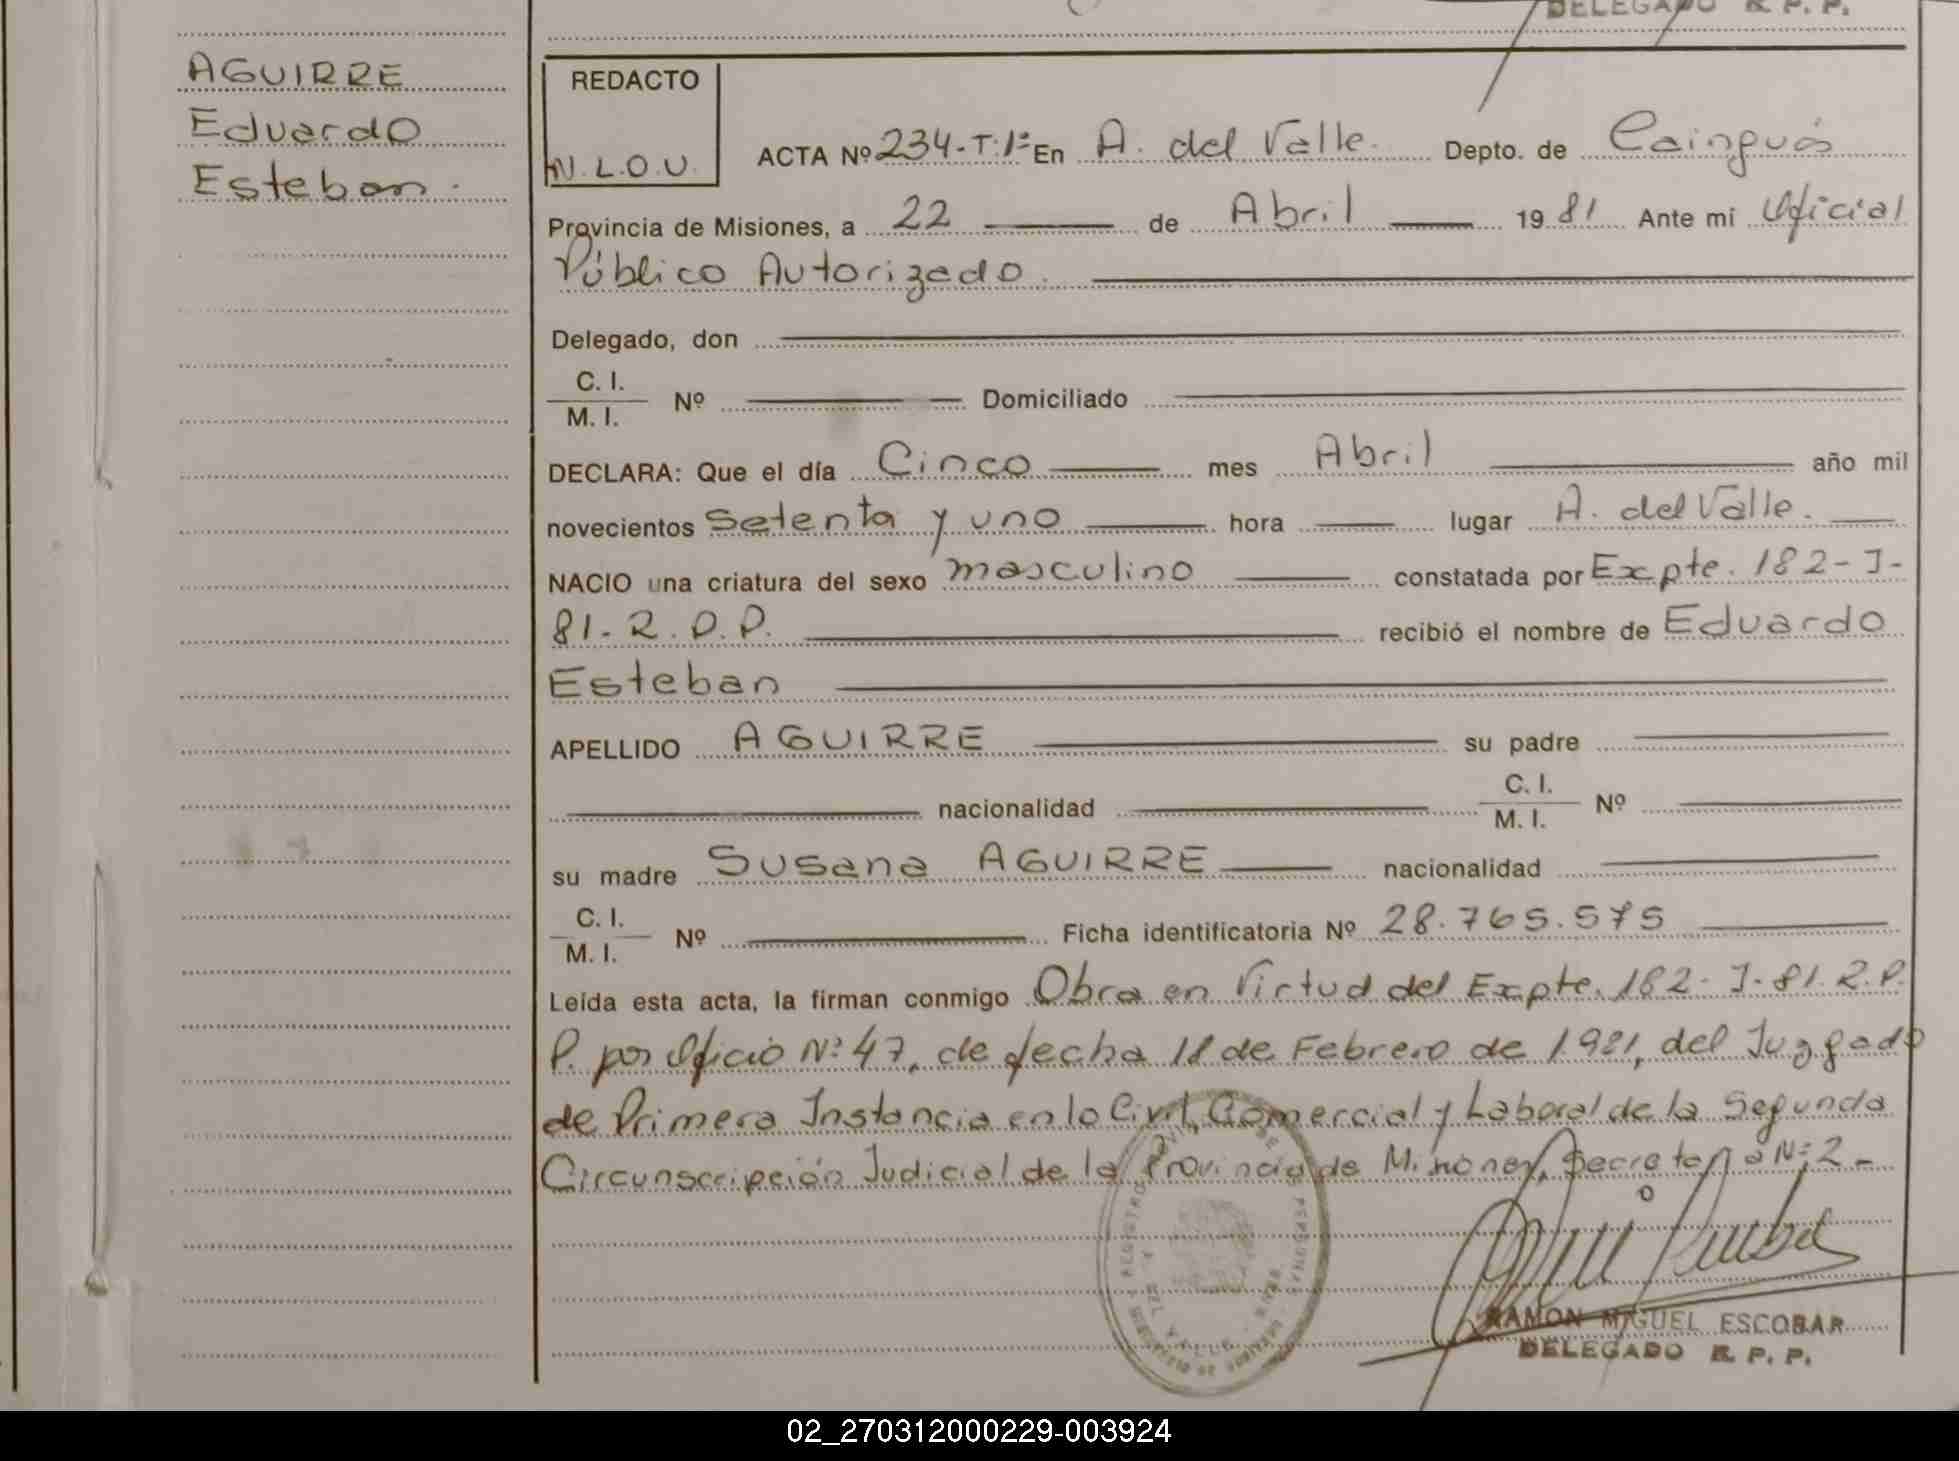 DELEGADO R. P. P.
AGUIRRE
Eduardo
Esteban.
REDACTO
N.L.O.U.
ACTA Nº 234-T:1º En A. del Valle. Depto. de Cainguás
Provincia de Misiones, a 22 de Abril 19 81 Ante mi Oficial
Público Autorizado.
Delegado, don
C. I.
M. I. Nº Domiciliado
DECLARA: Que el día Cinco mes Abril año mil
novecientos Setenta y uno hora lugar A. del Valle.
NACIO una criatura del sexo masculino constatada por Expte. 182-J-
81-R.P.P. recibió el nombre de Eduardo
Esteban
APELLIDO AGUIRRE su padre
nacionalidad C. I.
M. I. Nº
su madre Susana AGUIRRE nacionalidad
C. I.
M. I. Nº Ficha identificatoria Nº 28.765.575
Leída esta acta, la firman conmigo Obra en Virtud del Expte. 182-J-81.R.P.
P. por Oficio Nº 47, de fecha 11 de Febrero de 1.981, del Juzgado
de Primera Instancia en lo Civil, Comercial y Laboral de la Segunda
Circunscripción Judicial de la Provincia de Misiones, Secretaria Nº 2-
RAMON MIGUEL ESCOBAR
DELEGADO R. P. P.
02_270312000229-003924